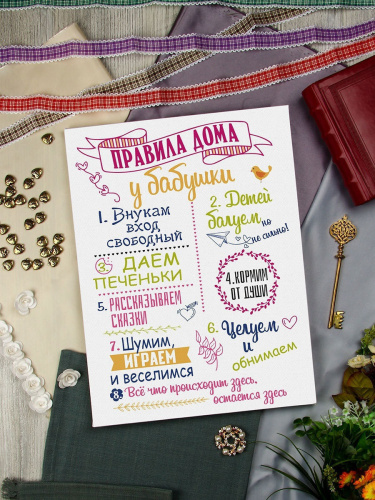 ПРАВИЛА ДОМА
у бабушки
1. Внукам
вход
свободный
2. Детей
балуем, но
не сильно!
3. ДАЕМ
ПЕЧЕНЬКИ
4. КОРМИМ
ОТ ДУШИ
5. РАССКАЗЫВАЕМ
СКАЗКИ
6. Целуем
и
обнимаем
7. Шумим,
ИГРАЕМ
и веселимся
8. Всё что происходит здесь,
остается здесь